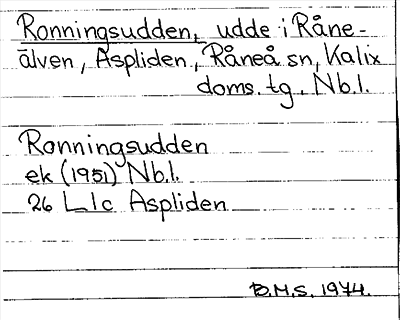 Ronningsudden, udde i Råne-
älven, Aspliden, Råneå sn, Kalix
doms. tg. Nb.l.
Ronningsudden
ek (1951) Nb.l.
26 L1c Aspliden
B.M.S. 1974.